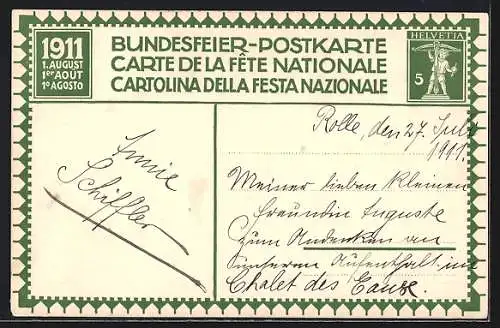 1911
1. AUGUST
1er AOÛT
1o AGOSTO
BUNDESFEIER-POSTKARTE
CARTE DE LA FÊTE NATIONALE
CARTOLINA DELLA FESTA NAZIONALE
HELVETIA
5
Annie
Schiffler
Rolle, den 27. Juli
1911.
Meiner lieben kleinen
Freundin Auguste
zum Andenken an
unseren Aufenthalt im
Chalet des Eaux.